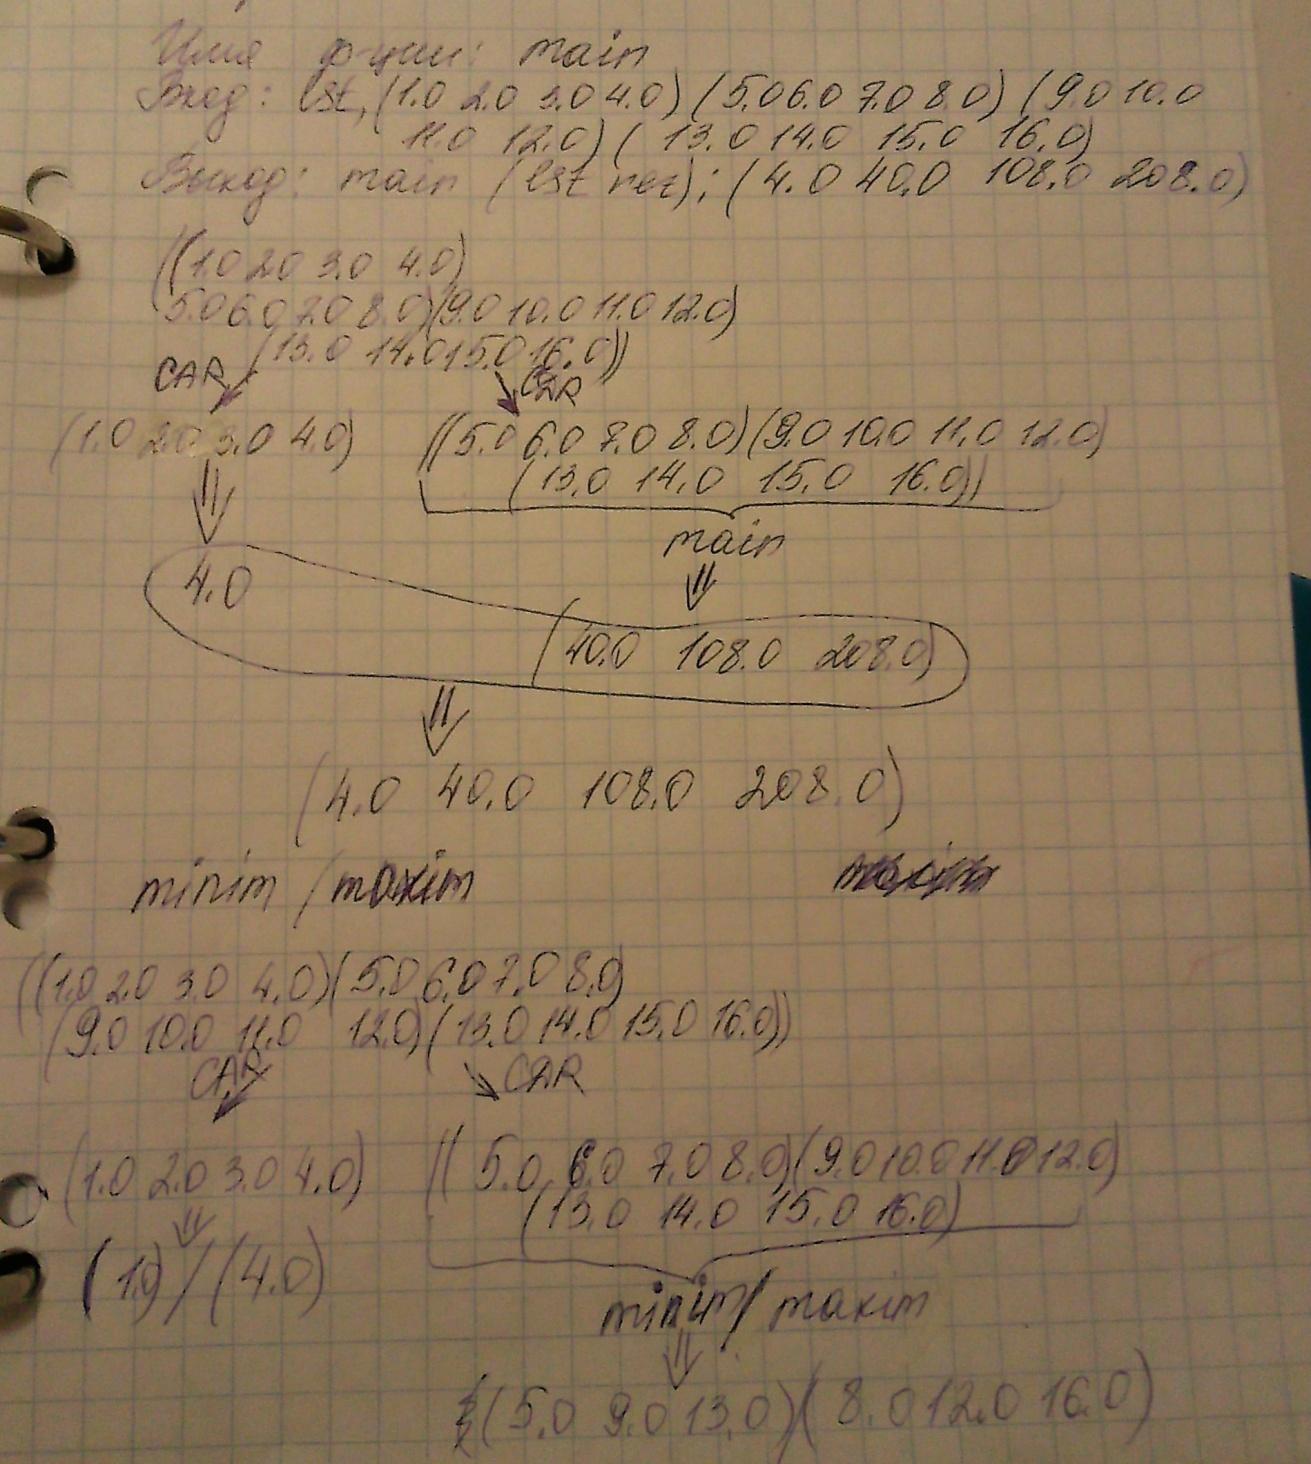 Имя ф-ции: main
Вход: lst, (1.0 2.0 3.0 4.0) (5.0 6.0 7.0 8.0) (9.0 10.0
11.0 12.0) ( 13.0 14.0 15.0 16.0)
Выход: main (lst rez); (4.0 40.0 108.0 208.0)
((1.0 2.0 3.0 4.0)
5.0 6.0 7.0 8.0)(9.0 10.0 11.0 12.0)
(13.0 14.0 15.0 16.0))
CAR CDR
(1.0 2.0 3.0 4.0) ((5.0 6.0 7.0 8.0)(9.0 10.0 11.0 12.0)
(13.0 14.0 15.0 16.0))
main
4.0
(40.0 108.0 208.0)
(4.0 40.0 108.0 208.0)
minim / maxim
((1.0 2.0 3.0 4.0)(5.0 6.0 7.0 8.0)
(9.0 10.0 11.0 12.0)(13.0 14.0 15.0 16.0))
CAR CDR
(1.0 2.0 3.0 4.0) ((5.0 6.0 7.0 8.0)(9.0 10.0 11.0 12.0)
(13.0 14.0 15.0 16.0)
(1.0) / (4.0)
minim / maxim
(5.0 9.0 13.0)(8.0 12.0 16.0)